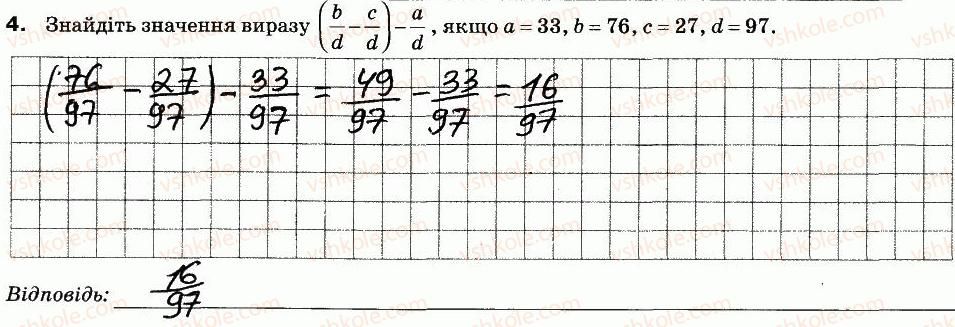 4. Знайдіть значення виразу (b/d − c/d) − a/d, якщо a = 33, b = 76, c = 27, d = 97.
(76/97 − 27/97) − 33/97 = 49/97 − 33/97 = 16/97
Відповідь: 16/97